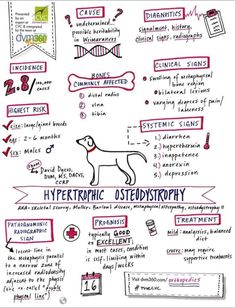 Presented by an
expert at
dvm360
CAUSE
undetermined...
possible heritability
in Weimaraners
DIAGNOSTICS
signalment, history,
clinical signs, radiographs
INCIDENCE
2.8/100,000
cases
BONES
COMMONLY AFFECTED
① distal radius
② ulna
③ tibia
CLINICAL SIGNS
swelling of metaphyseal bone
region
bilateral lesions
varying degrees of pain/
lameness
HIGHEST RISK
size: large/giant breeds
age: 2-6 months
sex: Males ♂
from
David Dycus,
DVM, MS, DACVS,
CCRP
SYSTEMIC SIGNS
1) diarrhea
2) hyperthermia
3) inappetence
4) anorexia
5) depression
HYPERTROPHIC OSTEODYSTROPHY
AKA: skeletal scurvy, Moller-Barlow's disease, metaphyseal osteopathy, osteodystrophy II
PATHOGNOMONIC
RADIOGRAPHIC
SIGN
lucent line in
the metaphysis parallel
to a narrow zone of
increased radiodensity
adjacent to the physis
PROGNOSIS
typically GOOD
to EXCELLENT
in most cases, condition
is self-limiting within
days/weeks
16
TREATMENT
mild: analgesics, balanced
diet
severe: may require
supportive treatments
Visit dvm360.com/orthopedics